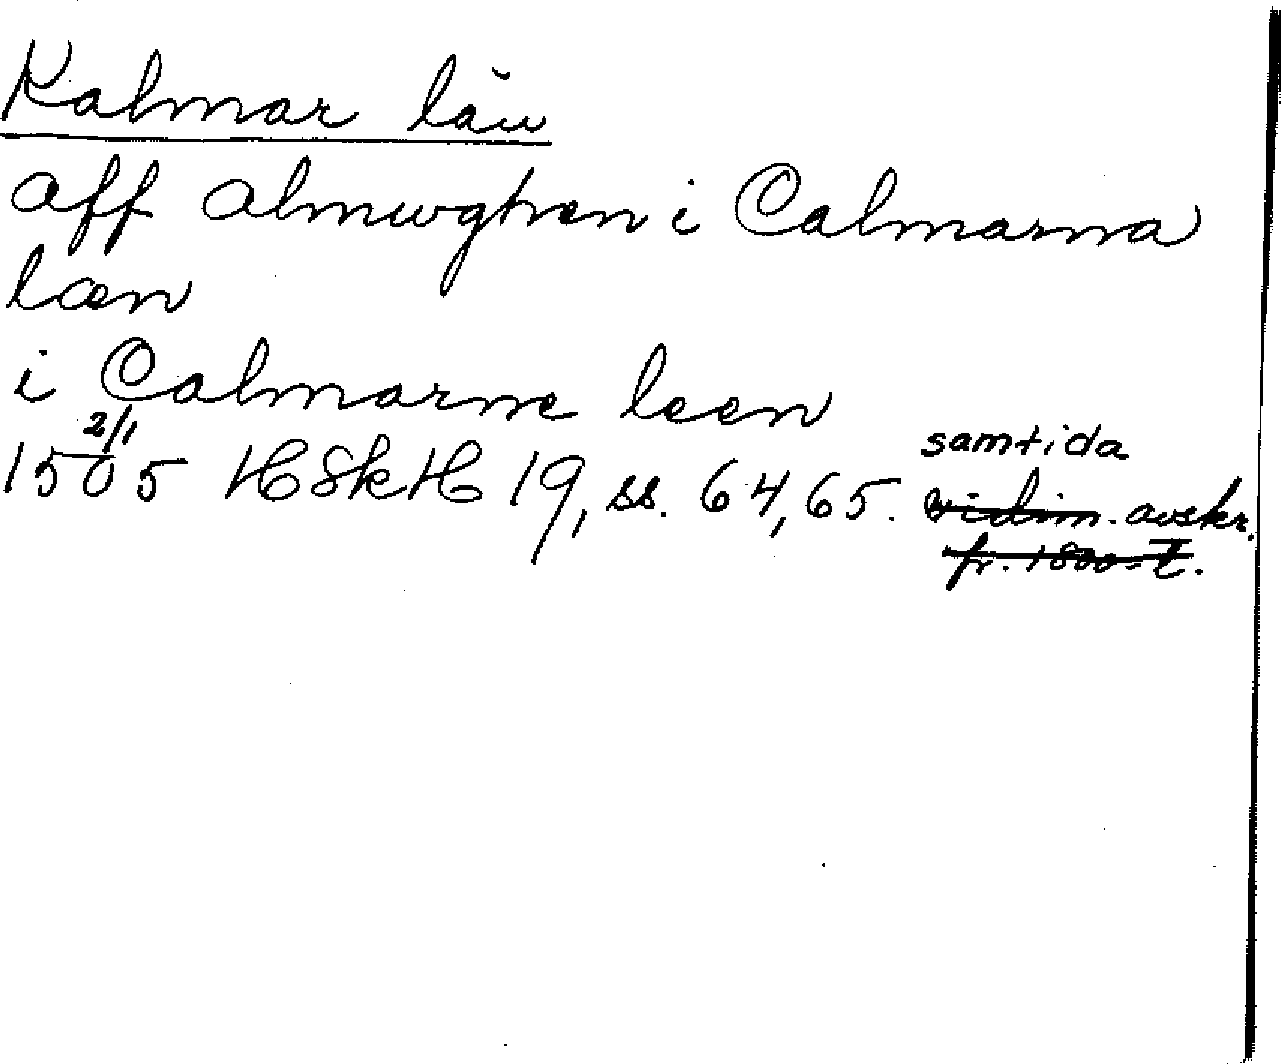 Kalmar län
aff almwghen i Calmarna
læn
i Calmarne leen
2/1
1505 HSkH 19, ss. 64, 65. samtida
vidim. avskr.
fr. 1800-t.